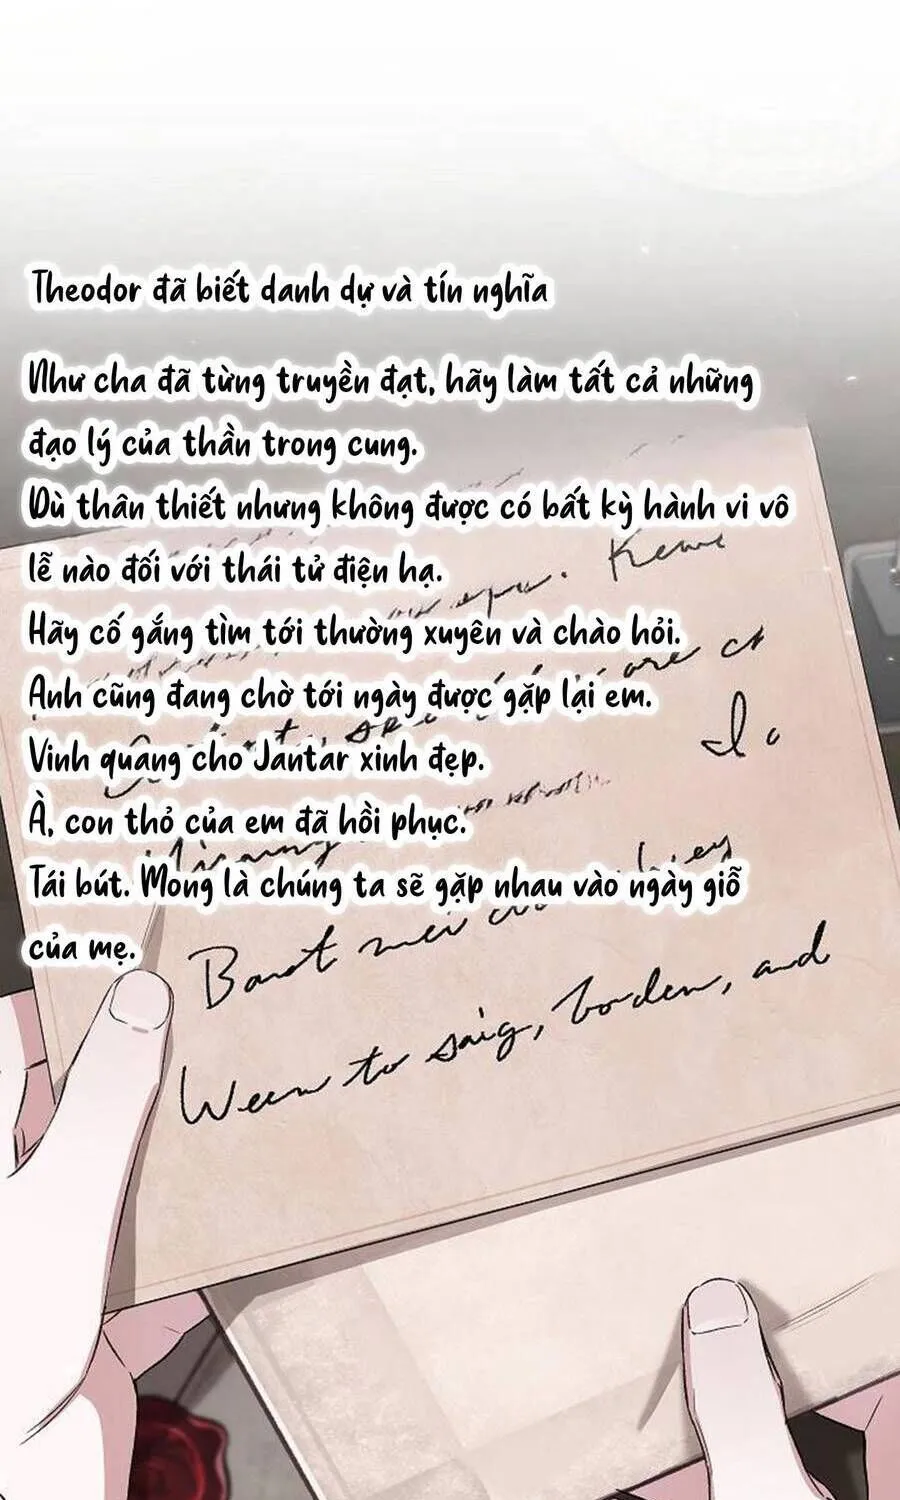 Theodor đã biết danh dự và tín nghĩa
Như cha đã từng truyền đạt, hãy làm tất cả những
đạo lý của thần trong cung.
Dù thân thiết nhưng không được có bất kỳ hành vi vô
lễ nào đối với thái tử điện hạ.
Hãy cố gắng tìm tới thường xuyên và chào hỏi.
Anh cũng đang chờ tới ngày được gặp lại em.
Vinh quang cho Jantar xinh đẹp.
À, con thỏ của em đã hồi phục.
Tái bút. Mong là chúng ta sẽ gặp nhau vào ngày giỗ
của mẹ.
and